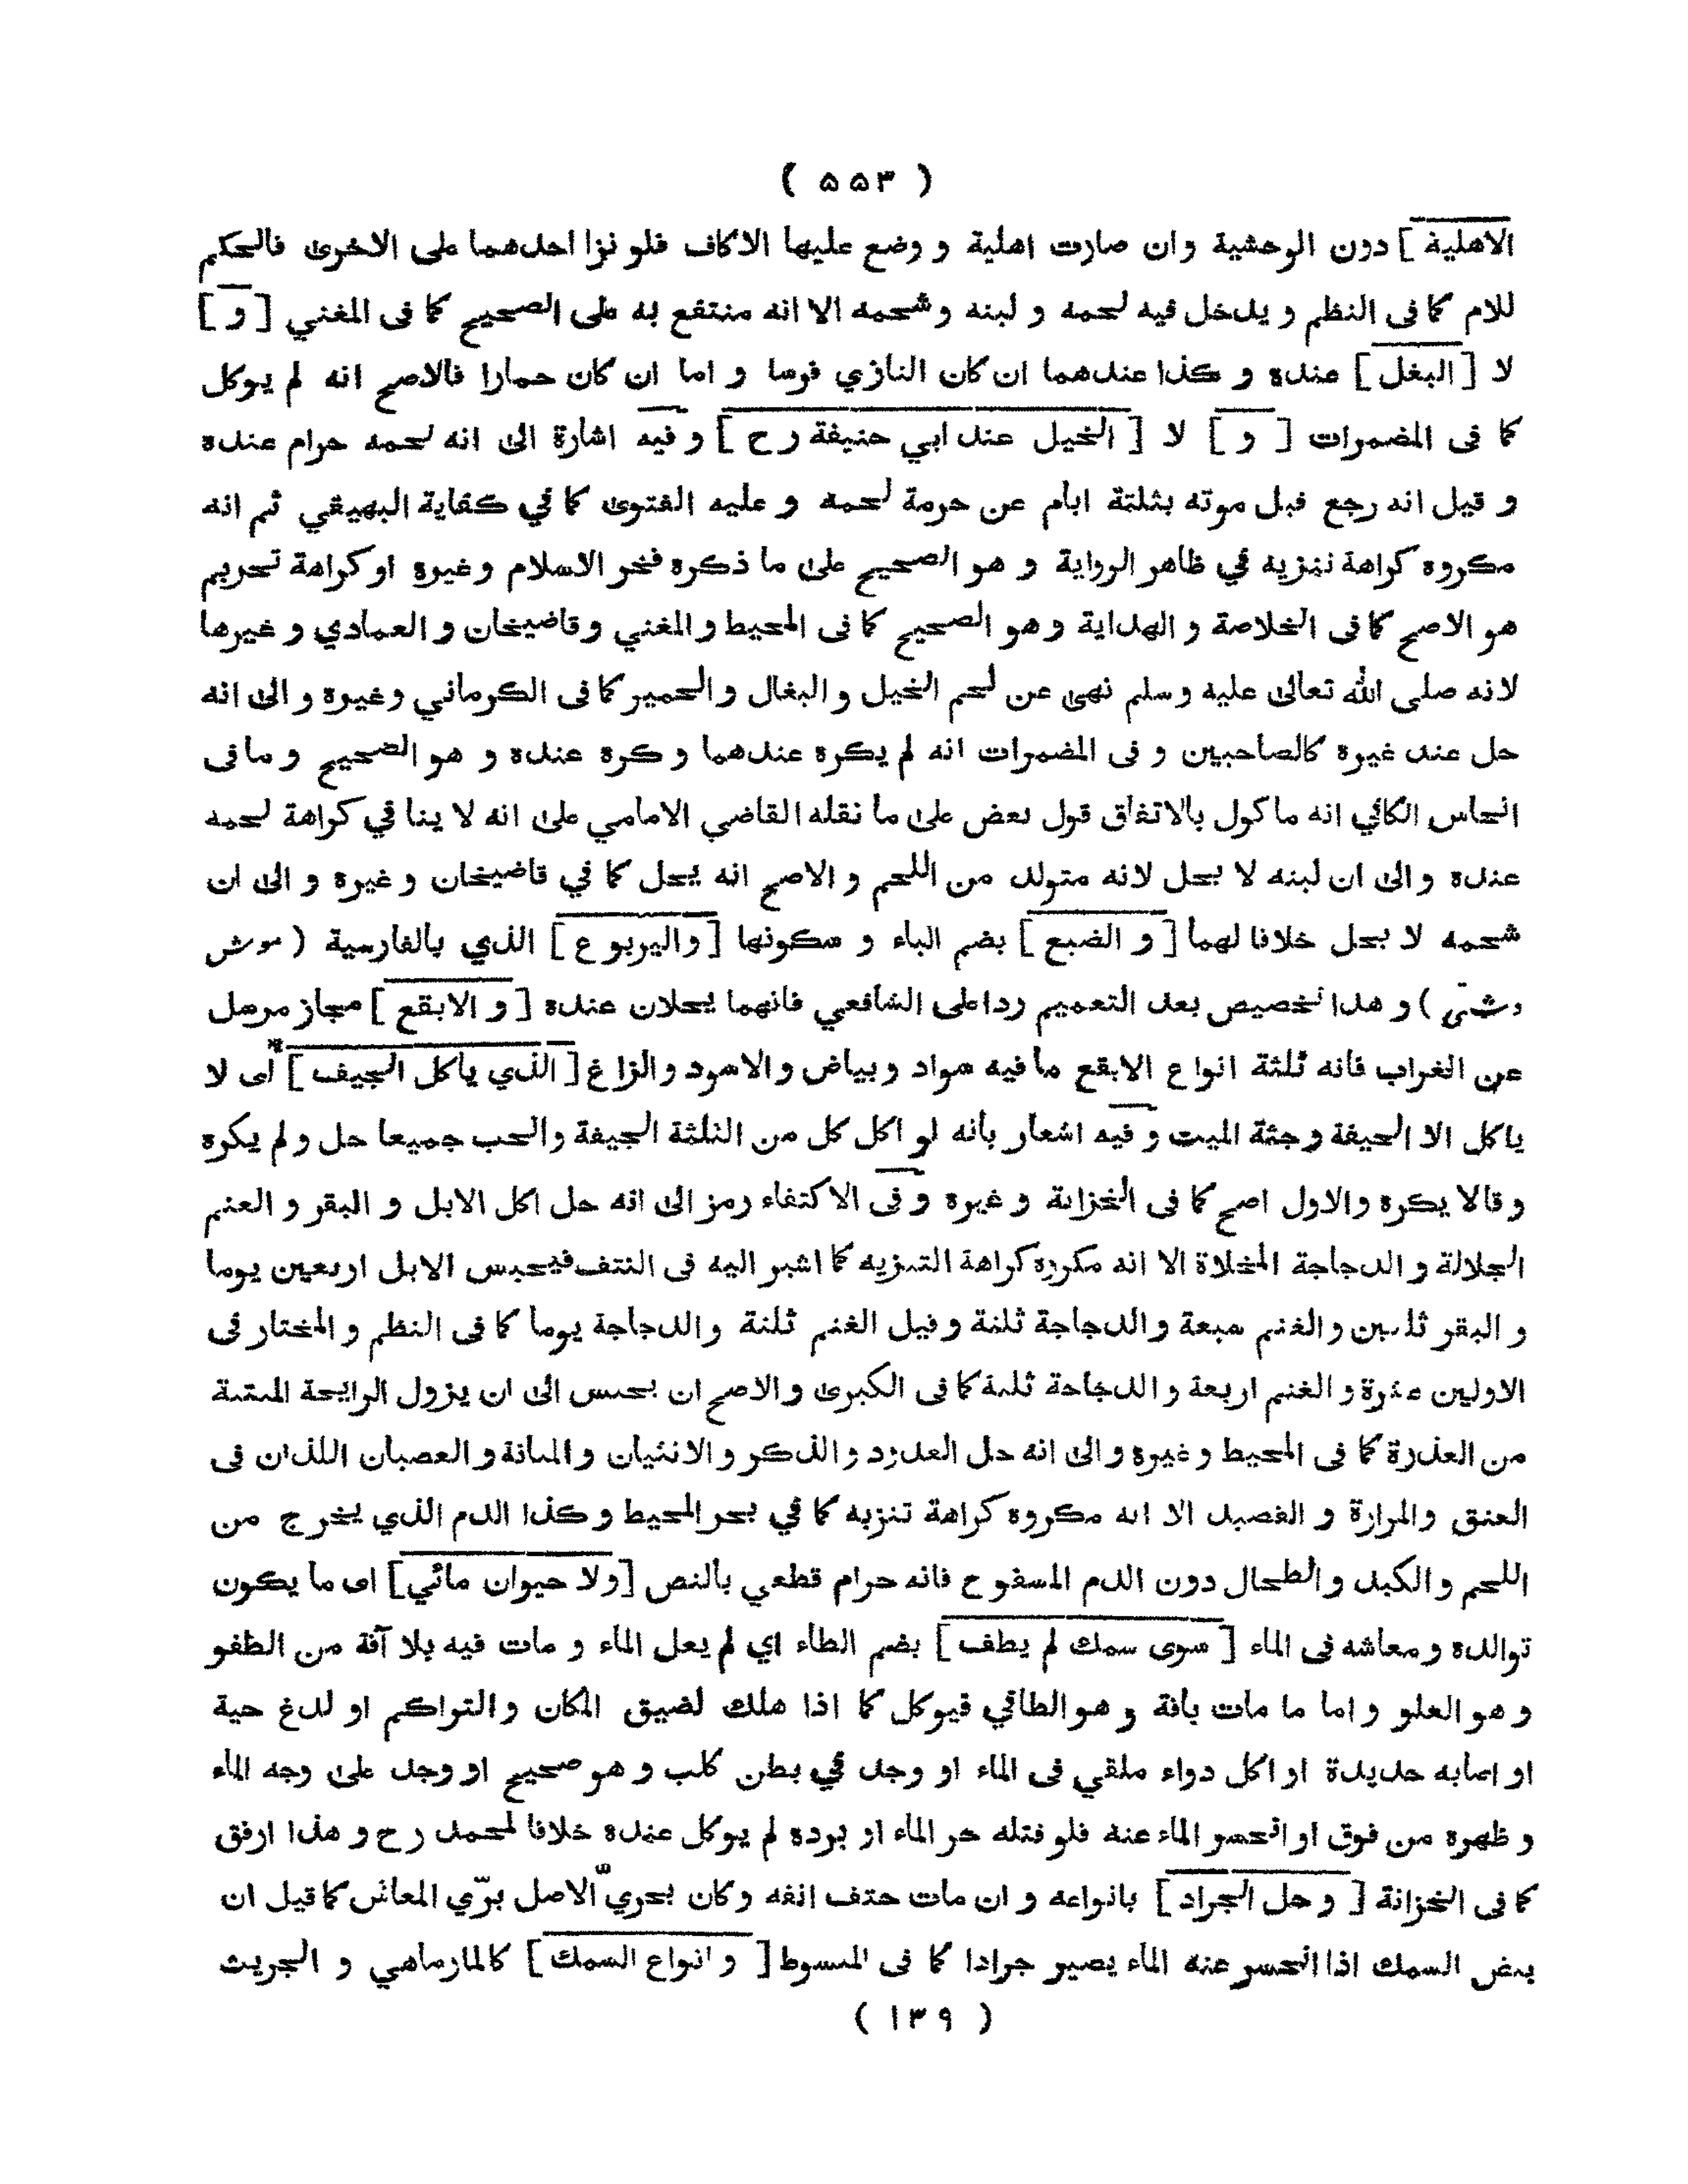 ( ۵۵۳ )
الاهلية ] دون الوحشية و ان صارت اهلية و وضع عليها الاكاف فلو نزا احدهما على الاخرى فالحكم
للام كما فى النظم و يدخل فيه لحمه و لبنه و شحمه الا انه منتفع به على الصحيح كما فى المغني [ و ]
لا [ البغل ] عنده و كذا عندهما ان كان النازي فرسا و اما ان كان حمارا فالاصح انه لم يوكل
كما فى المضمرات [ و ] لا [ الخيل عند ابي حنيفة رح ] و فيه اشارة الى انه لحمه حرام عنده
و قيل انه رجع قبل موته بثلثة ايام عن حرمة لحمه و عليه الفتوى كما في كفاية البهيقي ثم انه
مكروه كراهة تنزيه في ظاهر الرواية و هو الصحيح على ما ذكره فخر الاسلام و غيره او كراهة تحريم
هو الاصح كما فى الخلاصة و الهداية و هو الصحيح كما فى المحيط و المغني و قاضيخان و العمادي و غيرها
لانه صلى الله تعالى عليه وسلم نهى عن لحم الخيل و البغال و الحمير كما فى الكرماني و غيره و الى انه
حل عند غيره كالصاحبين و فى المضمرات انه لم يكره عندهما و كره عنده و هو الصحيح و ما فى
الكافي انه ماكول بالاتفاق قول بعض على ما نقله القاضي الامامي على انه لا ينا في كراهة لحمه
عنده و الى ان لبنه لا يحل لانه متولد من اللحم و الاصح انه يحل كما في قاضيخان و غيره و الى ان
شحمه لا يحل خلافا لهما [ و الضبع ] بضم الباء و سكونها [ و اليربوع ] الذي بالفارسية ( موش
دشتي ) و هذا تخصيص بعد التعميم ردا على الشافعي فانهما يحلان عنده [ و الابقع ] مجاز مرسل
عن الغراب فانه ثلثة انواع الابقع ما فيه سواد و بياض و الاسود و الزاغ [ الذي ياكل الجيف ] اى لا
ياكل الا الجيفة و جثة الميت و فيه اشعار بانه لو اكل كل من الثلثة الجيفة و الحب جميعا حل و لم يكره
و قالا يكره و الاول اصح كما فى الخزانة و غيره و فى الاكتفاء رمز الى انه حل اكل الابل و البقر و الغنم
الجلالة و الدجاجة المخلاة الا انه مكروه كراهة التنزيه كما اشير اليه فى النتف فيحبس الابل اربعين يوما
و البقر ثلثين و الغنم سبعة و الدجاجة ثلثة و قيل الغنم ثلثة و الدجاجة يوما كما فى النظم و المختار فى
الاولين عشرة و الغنم اربعة و الدجاجة ثلثة كما فى الكبرى و الاصح ان يحبس الى ان يزول الرايحة المنتنة
من العذرة كما فى المحيط و غيره و الى انه حل الغدود و الذكر و الانثيان و المثانة و العصبان اللذان فى
العنق و المرارة و القصيد الا انه مكروه كراهة تنزيه كما في بحر المحيط و كذا الدم الذي يخرج من
اللحم و الكبد و الطحال دون الدم المسفوح فانه حرام قطعي بالنص [ ولا حيوان مائي ] اى ما يكون
توالده و معاشه فى الماء [ سوى سمك لم يطف ] بضم الطاء اي لم يعل الماء و مات فيه بلا آفة من الطفو
و هو العلو و اما ما مات بافة و هو الطافي فيوكل كما اذا هلك لضيق المكان و التواكم او لدغ حية
او اصابه حديدة او اكل دواء ملقي فى الماء او وجد في بطن كلب و هو صحيح او وجد على وجه الماء
و ظهره من فوق او انحسر الماء عنه فلو قتله حر الماء او برده لم يوكل عنده خلافا لمحمد رح و هذا ارفق
كما فى الخزانة [ و حل الجراد ] بانواعه و ان مات حتف انفه و كان بحريّ الاصل برّي المعاش كما قيل ان
بيض السمك اذا انحسر عنه الماء يصير جرادا كما فى المبسوط [ و انواع السمك ] كالمارماهي و الجريث
( ۱۳۹ )